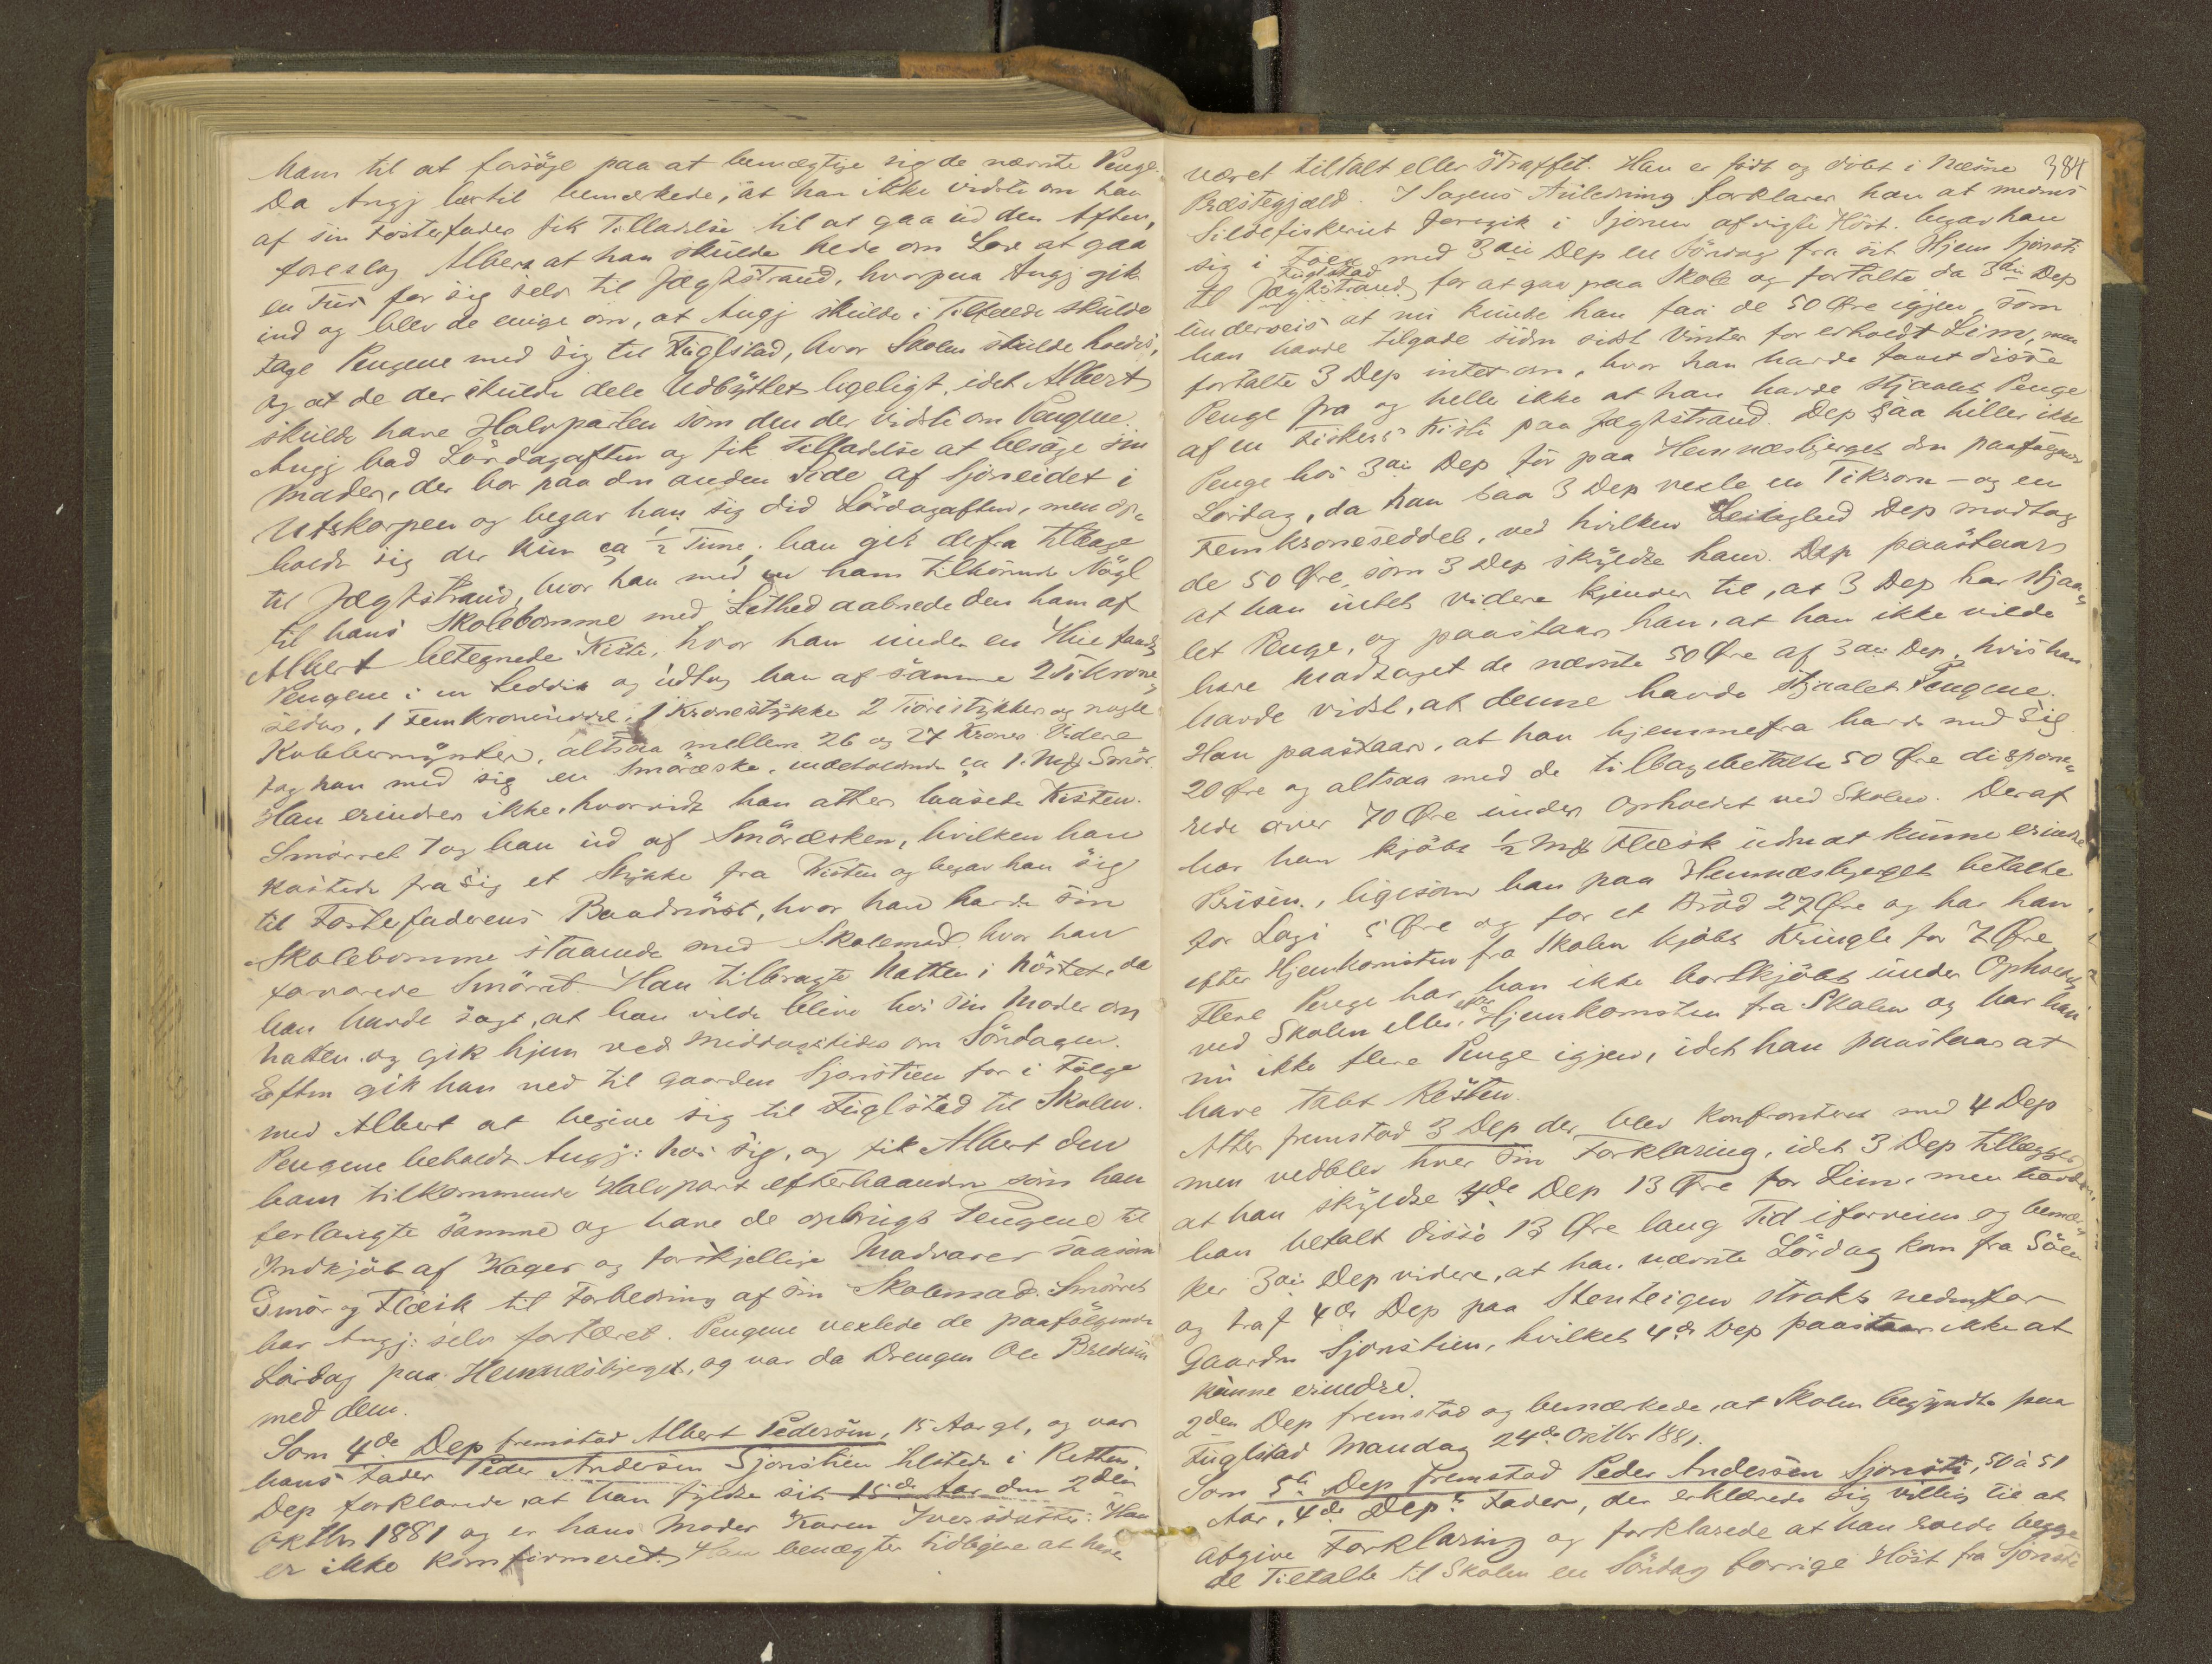 ham til at forsöge paa at bemægtige sig de nævnte Penge.
Da Angj hertil bemærkede, at han ikke vidste om han
af sin Fosterfader fik Tilladelse til at gaa ud den Aften,
foreslog Albert at han skulde bede om Lov at gaa
en Tur for sig selv til Jægtstrand, hvorpaa Angj gik
ind og blev de enige om, at Angj skulde i Tilfælde skulde
tage Pengene med sig til Fuglstad, hvor Skolen skulde holdes,
og at de der skulde dele Udbyttet ligeligt, idet Albert
skulde have Halvparten som den der vidste om Pengene.
Angj bad Lördagaften og fik Tilladelse at besöge sin
Moder, der bor paa den anden Side af Sjoneidet i
Utskarpen og begav han sig did Lördagaften, men op-
holdt sig der kun ca 1/2 Time; han gik defra tilbage
til Jægtstrand, hvor han med en ham tilhörende Nögl
til hans Skolebomme med Lethed aabnede den ham af
Albert betegnede Kiste, hvor han under en Hue fandt
Pengene i en Leddik og udtog han af samme 2 Tikrone-
sedler, 1 Femkroneseddel, 1 Kronestykke 2 Tiörestykker og nogle
Kobbermynter, altsaa mellem 26 og 27 Kroner. Videre
tog han med sig en Smöræske, indeholdende ca 1. Mk Smör.
Han erindrer ikke, hvorvidt han atter laasede Kisten.
Smörret tog han ud af Smöræsken, hvilken han
kastede fra sig et Stykke fra Kisten og begav han sig
til Fosterfaderens Baadnöst, hvor han havde sin
Skolebomme staaende med Skolemad, hvor han
forvarede Smörret. Han tilbragte Natten i Nöstet, da
han havde sagt, at han vilde blive hos sin Moder om
Natten og gik hjem ved Middagstider om Söndagen.
Eftm gik han ned til Gaarden Sjonstien for i Fölge
med Albert at begive sig til Fuglstad til Skolen.
Pengene beholdt Angj: hos sig, og fik Albert den
ham tilkommende Halvpart efterhaanden som han
forlangte samme og have de opbrugt Pengene til
Indkjöb af Kager og forskjellige Madvarer saasom
Smör og Flæsk til Forbedring af sin Skolemad. Smörret
har Angj: selv fortæret. Pengene vexlede de paafölgende
Lördag paa Hemnæsbjerget, og var da Drengen Ole Bredesen
med dem.
Som 4de Dep fremstod Albert Pedersen, 15 Aar gl, og var
hans Fader Peder Andersen Sjonstien tilstede i Retten.
Dep forklarede, at han fyldte sit 15de Aar den 2den
Oktbr 1881 og er hans Moder Karen Iversdatter. Han
er ikke konfirmeret. Han benægter tidligere at have
384
været tiltalt eller straffet. Han er födt og döbt i Næsne
Præstegjæld. I Sagens Anledning forklarer han at medens
Sildefiskeriet foregik i Sjonen afvigte Höst, begav han
sig i Fölge med 3die Dep en Söndag fra sit Hjem Sjonsti
Fuglstad
til Jægtstrand for at gaa paa Skole og fortalte da 3die Dep
underveis at nu kunde han faa de 50 Öre igjen, som
han havde tilgode siden sidst Vinter for erholdt Lim, men
fortalte 3 Dep intet om, hvor han havde faaet disse
Penge fra og heller ikke at han havde stjaalet Penge
af en Fiskers Kiste paa Jægtstrand. Dep saa heller ikke
Penge hos 3die Dep för paa Hemnæsbjerget den paafölgende
Lördag, da han saa 3 Dep vexle en Tikrone- og en
Femkroneseddel, ved hvilken Leilighed Dep modtog
de 50 Öre, som 3 Dep skyldte ham. Dep paastaar
at han intet videre kjender til, at 3 Dep har stjaa-
let Penge, og paastaar han, at han ikke vilde
have modtaget de nævnte 50 Öre af 3die Dep, hvis han
havde vidst, at denne havde stjaalet Pengene.
Han paastaar, at han hjemmefra havde med sig
20 Öre og altsaa med de tilbagebetalte 50 Öre dispone-
rede over 70 Öre under Opholdet ved Skolen. Deraf
har han kjöbt 1/2 Mk Flæsk uden at kunne erindre
Prisen, ligesom han paa Hemnæsbjerget betalte
for Logi 5 Öre og for et Bröd 27 Öre og har han
efter Hjemkomsten fra Skolen kjöbt Kringle for 7 Öre
Flere Penge har han ikke bortkjöbt under Opholdet
efter
ved Skolen eller Hjemkomsten fra Skolen og har han
nu ikke flere Penge igjen, idet han paastaar at
have tabt Resten.
Atter fremstod 3 Dep der blev konfronteret med 4 Dep
men vedblev hver sin Forklaring, idet 3 Dep tillægger
at han skyldte 4de Dep 13 Öre for Lim, men havde
han betalt disse 13 Öre lang Tid iforveien og bemær-
ker 3die Dep videre, at han nævnte Lördag kom fra Söen
og traf 4de Dep paa Stenteigen straks nedenfor
Gaarden Sjonstien, hvilket 4de Dep paastaar ikke at
kunne erindre.
2den Dep fremstod og bemærkede, at Skolen begyndte paa
Fuglstad Mandag 24de Oktbr 1881.
Som 5te Dep fremstod Peder Andersen Sjonsti, 50 à 51
Aar, 4de Dep:s Fader, der erklærede sig villig til at
afgive Forklaring og forklarede at han roede begge
de Tiltalte til Skolen en Söndag forrige Höst fra Sjonsti